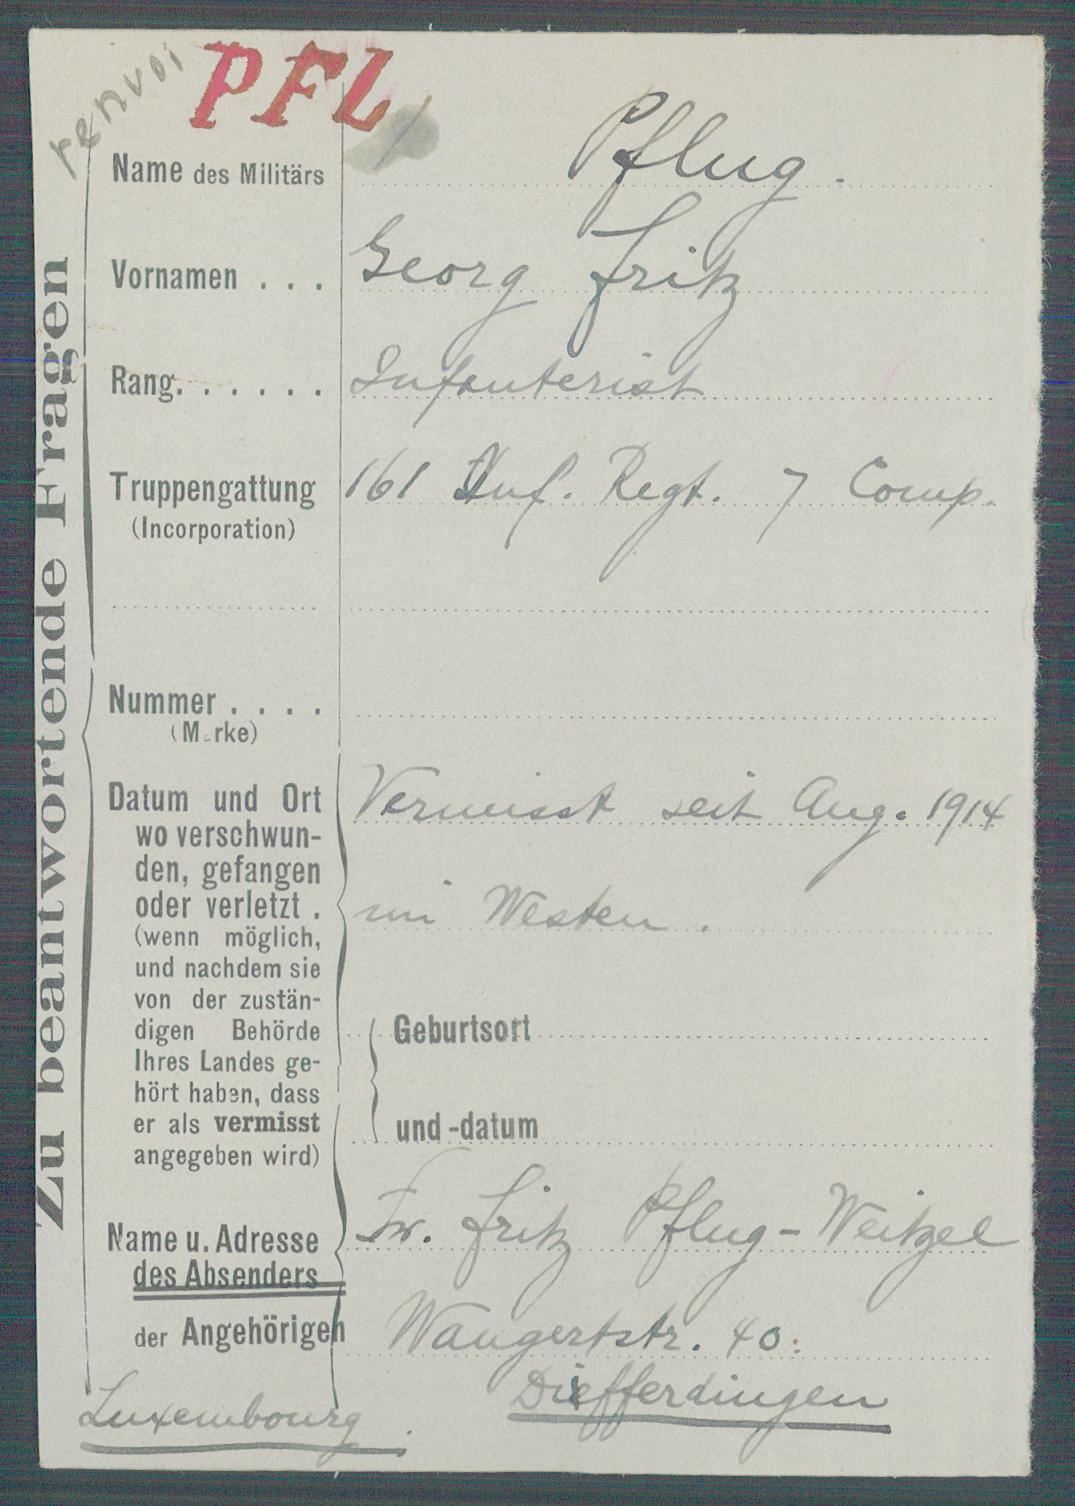 renvoi
PFL
Zu beantwortende Fragen
Name des Militärs Pflug.
Vornamen . . . Georg Fritz
Rang. . . . . . Infanterist
Truppengattung 161 Inf. Regt. 7 Comp.
(Incorporation)
Nummer . . . .
(Marke)
Datum und Ort Vermisst seit Aug. 1914
wo verschwun-
den, gefangen
oder verletzt . im Westen.
(wenn möglich,
und nachdem sie
von der zustän-
digen Behörde Geburtsort
Ihres Landes ge-
hört haben, dass
er als vermisst und -datum
angegeben wird)
Name u. Adresse Fr. Fritz Pflug-Weitzel
des Absenders
der Angehörigen Wangertstr. 40.
Diefferdingen
Luxembourg